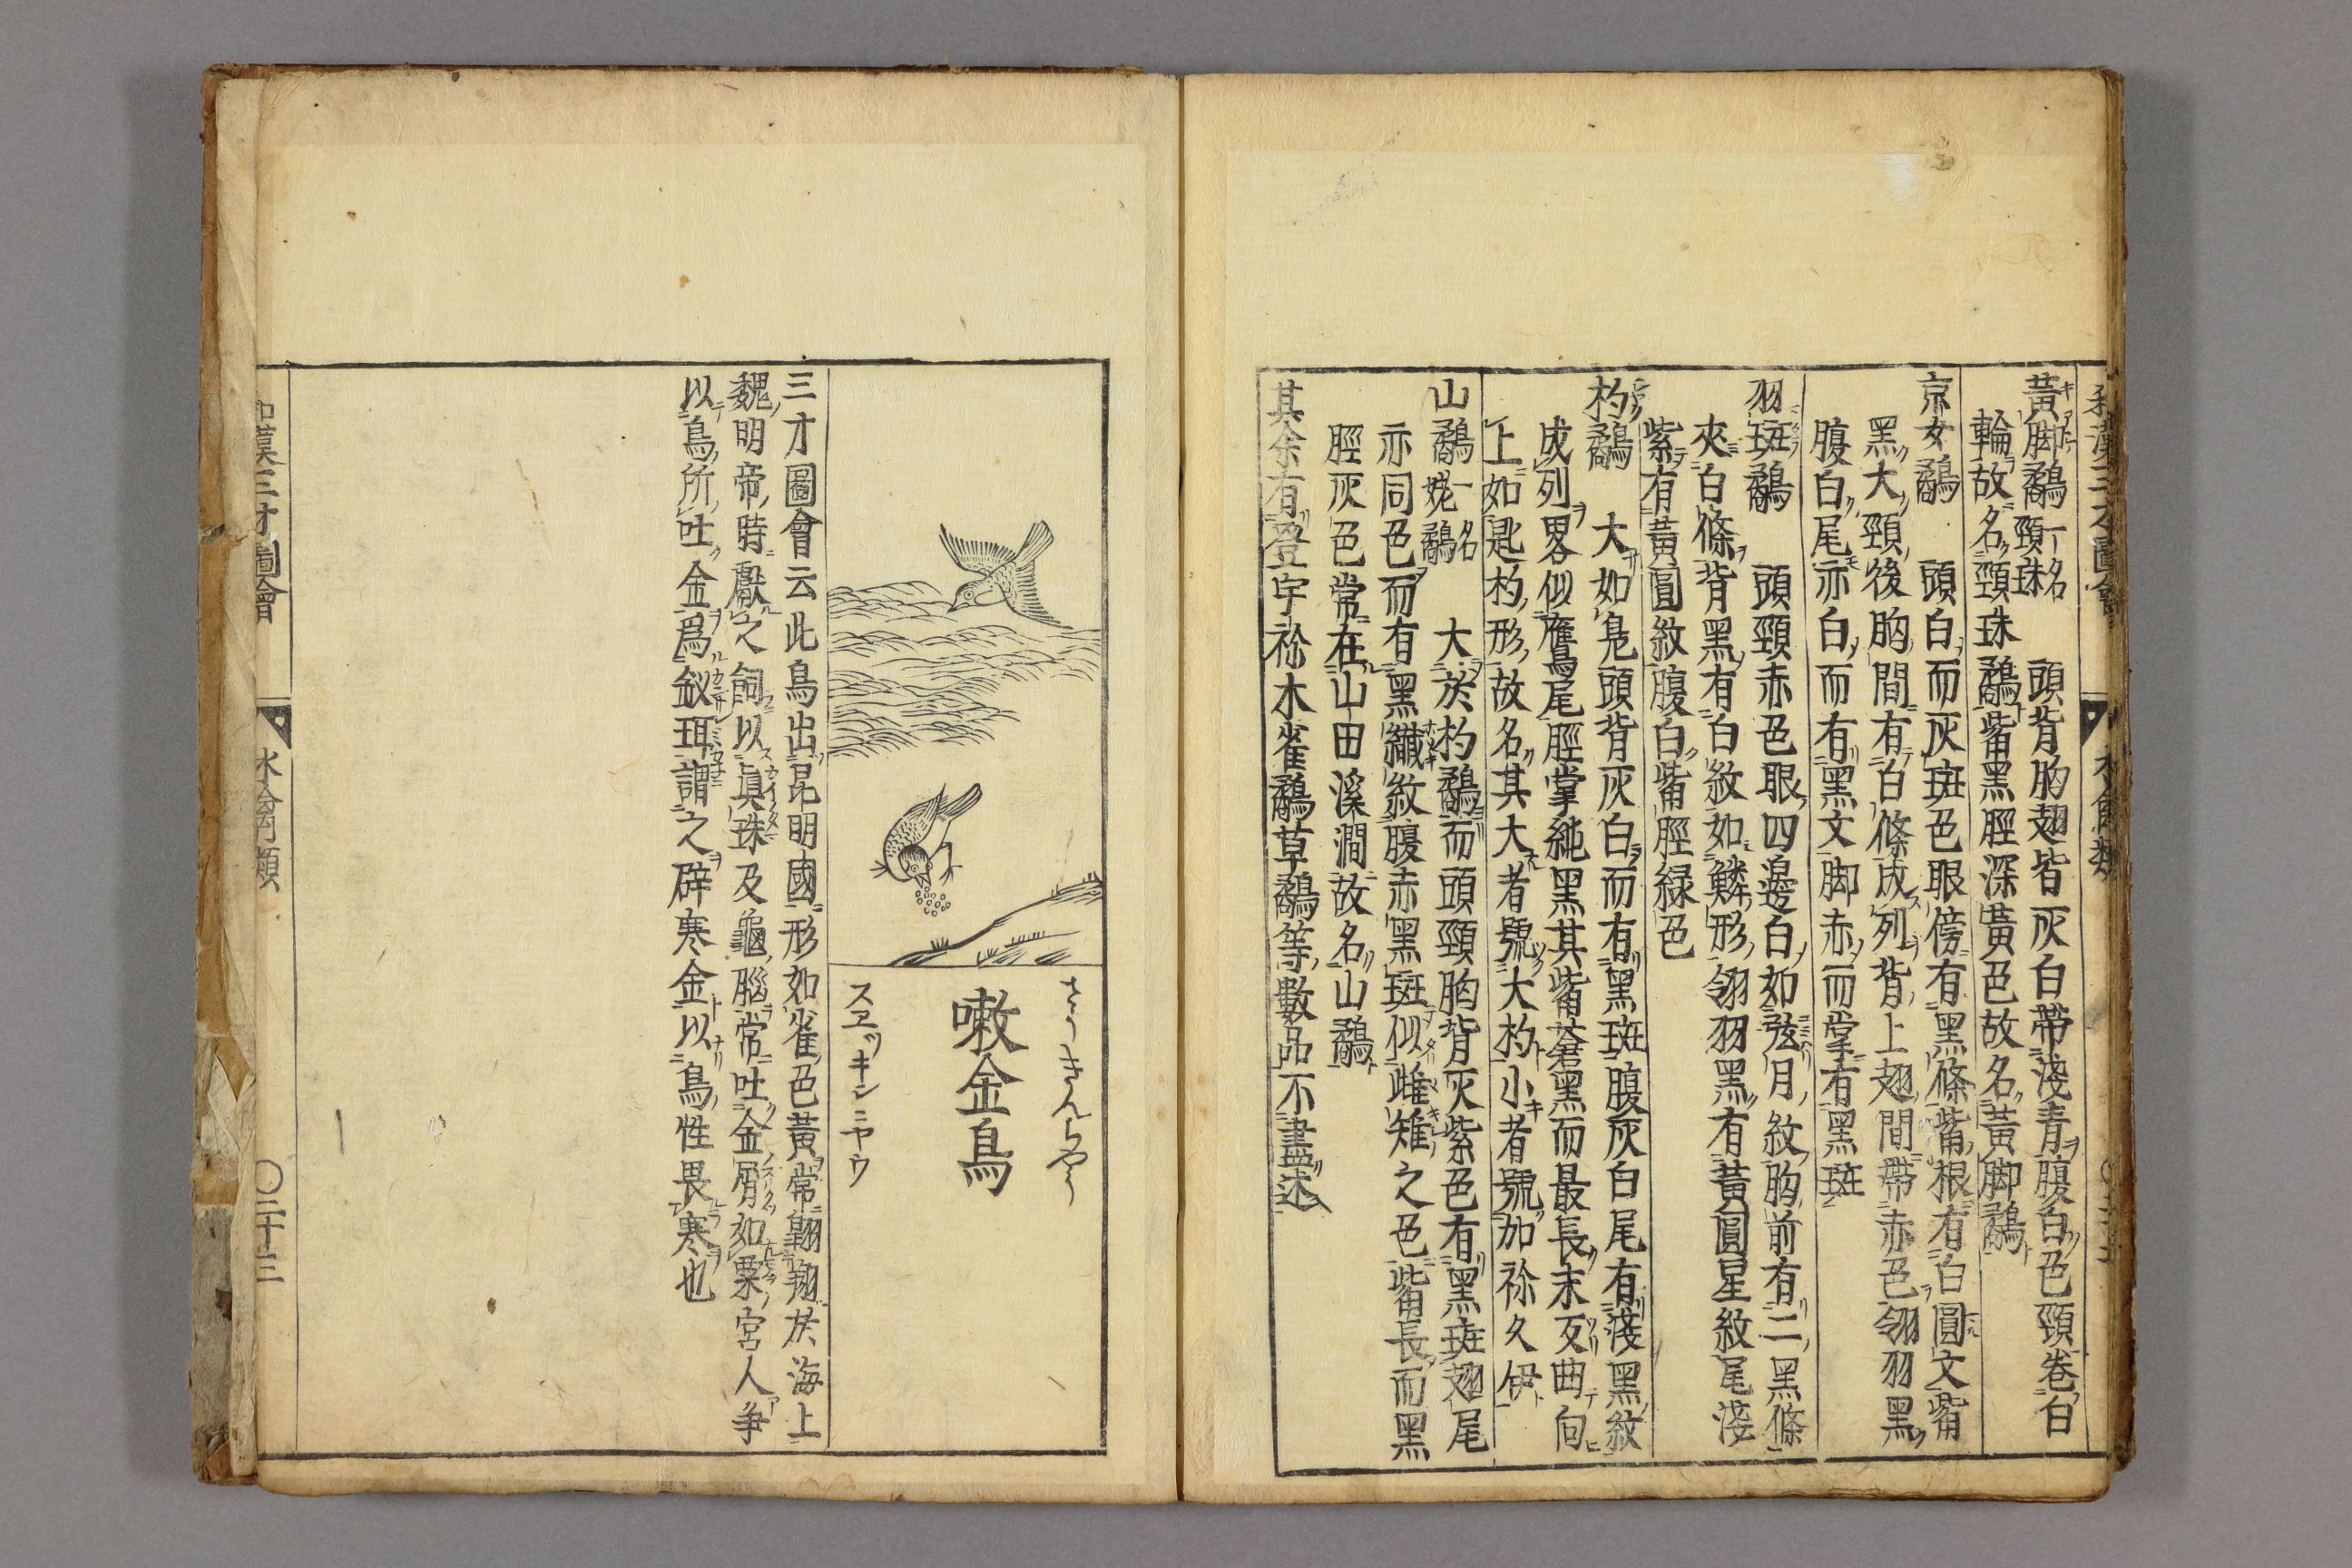 黃脚鷸 一名頸珠 頭背胸翅皆灰白帶淺青腹白色頸卷白
輪故名頸珠鷸觜黑脛深黃色故名黃脚鷸
京女鷸 頭白而灰斑色眼傍有黑條觜根有白圓文觜
黑大頸後胸間有白條成列背上翅間帶赤色翎羽黑
腹白尾亦白而有黑文脚赤而掌有黑斑
羽斑鷸 頭頸赤色眼四邊白如弦月紋胸前有二黑條
夾白條背黑有白紋如鱗形翎羽黑有黃圓星紋尾淺
紫有黃圓紋腹白觜脛緑色
杓鷸 大如鳬頭背灰白而有黑斑腹灰白尾有淺黑紋
成列畧似鷹尾脛掌純黑其觜蒼黑而最長末反曲向
上如匙杓形故名其大者號大杓小者號加祢久伊
山鷸 一名姥鷸 大於杓鷸而頭頸胸背灰紫色有黑斑翅尾
亦同色而有黑纎紋腹赤黑斑似雌雉之色觜長而黑
脛灰色常在山田溪澗故名山鷸
其余有登宇祢木雀鷸草鷸等數品不盡述
さうきんちやう
嗽金鳥
スヱツキンニヤウ
三才圖會云此鳥出昆明國形如雀色黃常翺翔於海上
魏明帝時獻之飼以眞珠及龜腦常吐金屑如粟宮人爭
以鳥所吐金爲釵珥謂之辟寒金以鳥性畏寒也
和漢三才圖會 水禽類 〇二十三